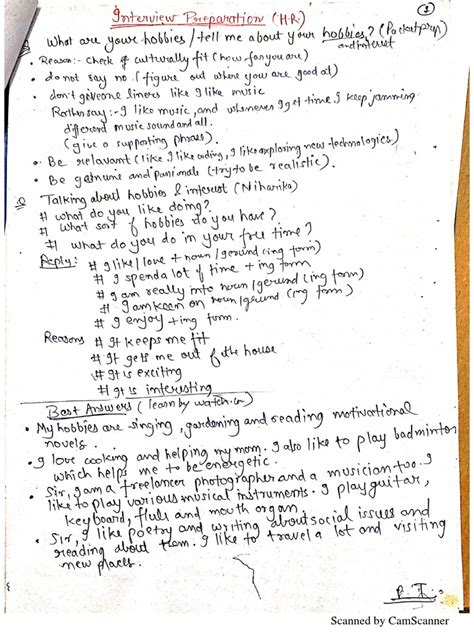 Interview Preparation (H.R.)
1
Q What are your hobbies / tell me about your hobbies? (Pocketprep)
and interest
• Reason:- check if culturally fit (how fun you are)
• do not say no (figure out where you are good at)
• don't give one liners like I like music
Rather say:- I like music, and whenever I get time I keep jamming
different music sound and all.
(give a supporting phrase).
• Be relavant (like I like coding, I like exploring new technologies)
• Be genuine and passionate (try to be realistic).
Q Talking about hobbies & interest (Niharika)
# What do you like doing?
# What sort of hobbies do you have?
# What do you do in your free time?
Reply: # I like / love + noun / gerund (ing form)
# I spend a lot of time + ing form
# I am really into noun / gerund (ing form)
# I am keen on noun / gerund (ing form)
# I enjoy + ing form.
Reasons # It keeps me fit
# It gets me out of the house
# It is exciting
# It is interesting
Best Answers (learn by watch.in)
• My hobbies are singing, gardening and reading motivational
novels.
• I love cooking and helping my mom. I also like to play badminton
which helps me to be energetic.
• Sir, I am a freelancer photographer and a musician too. I
like to play various musical instruments. I play guitar,
keyboard, flute and mouth organ.
• Sir, I like poetry and writing about social issues and
reading about them. I like to travel a lot and visiting
new places.
Scanned by CamScanner